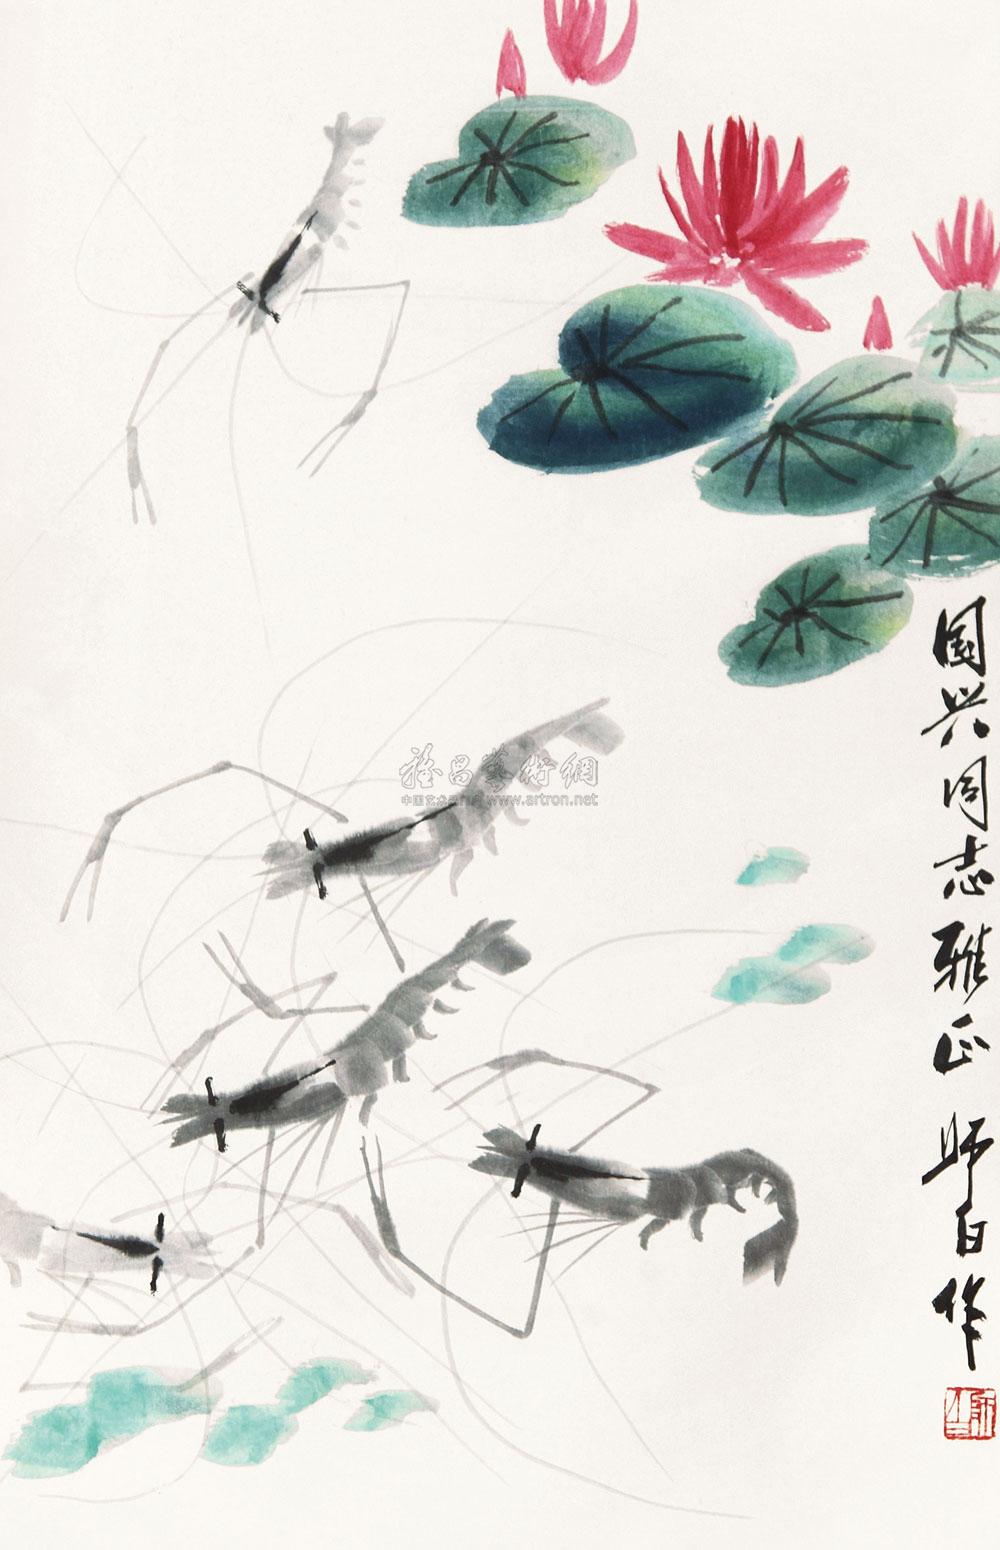 国兴同志雅正 师白作
雅昌藝術網
中国艺术品门户网 www.artron.net